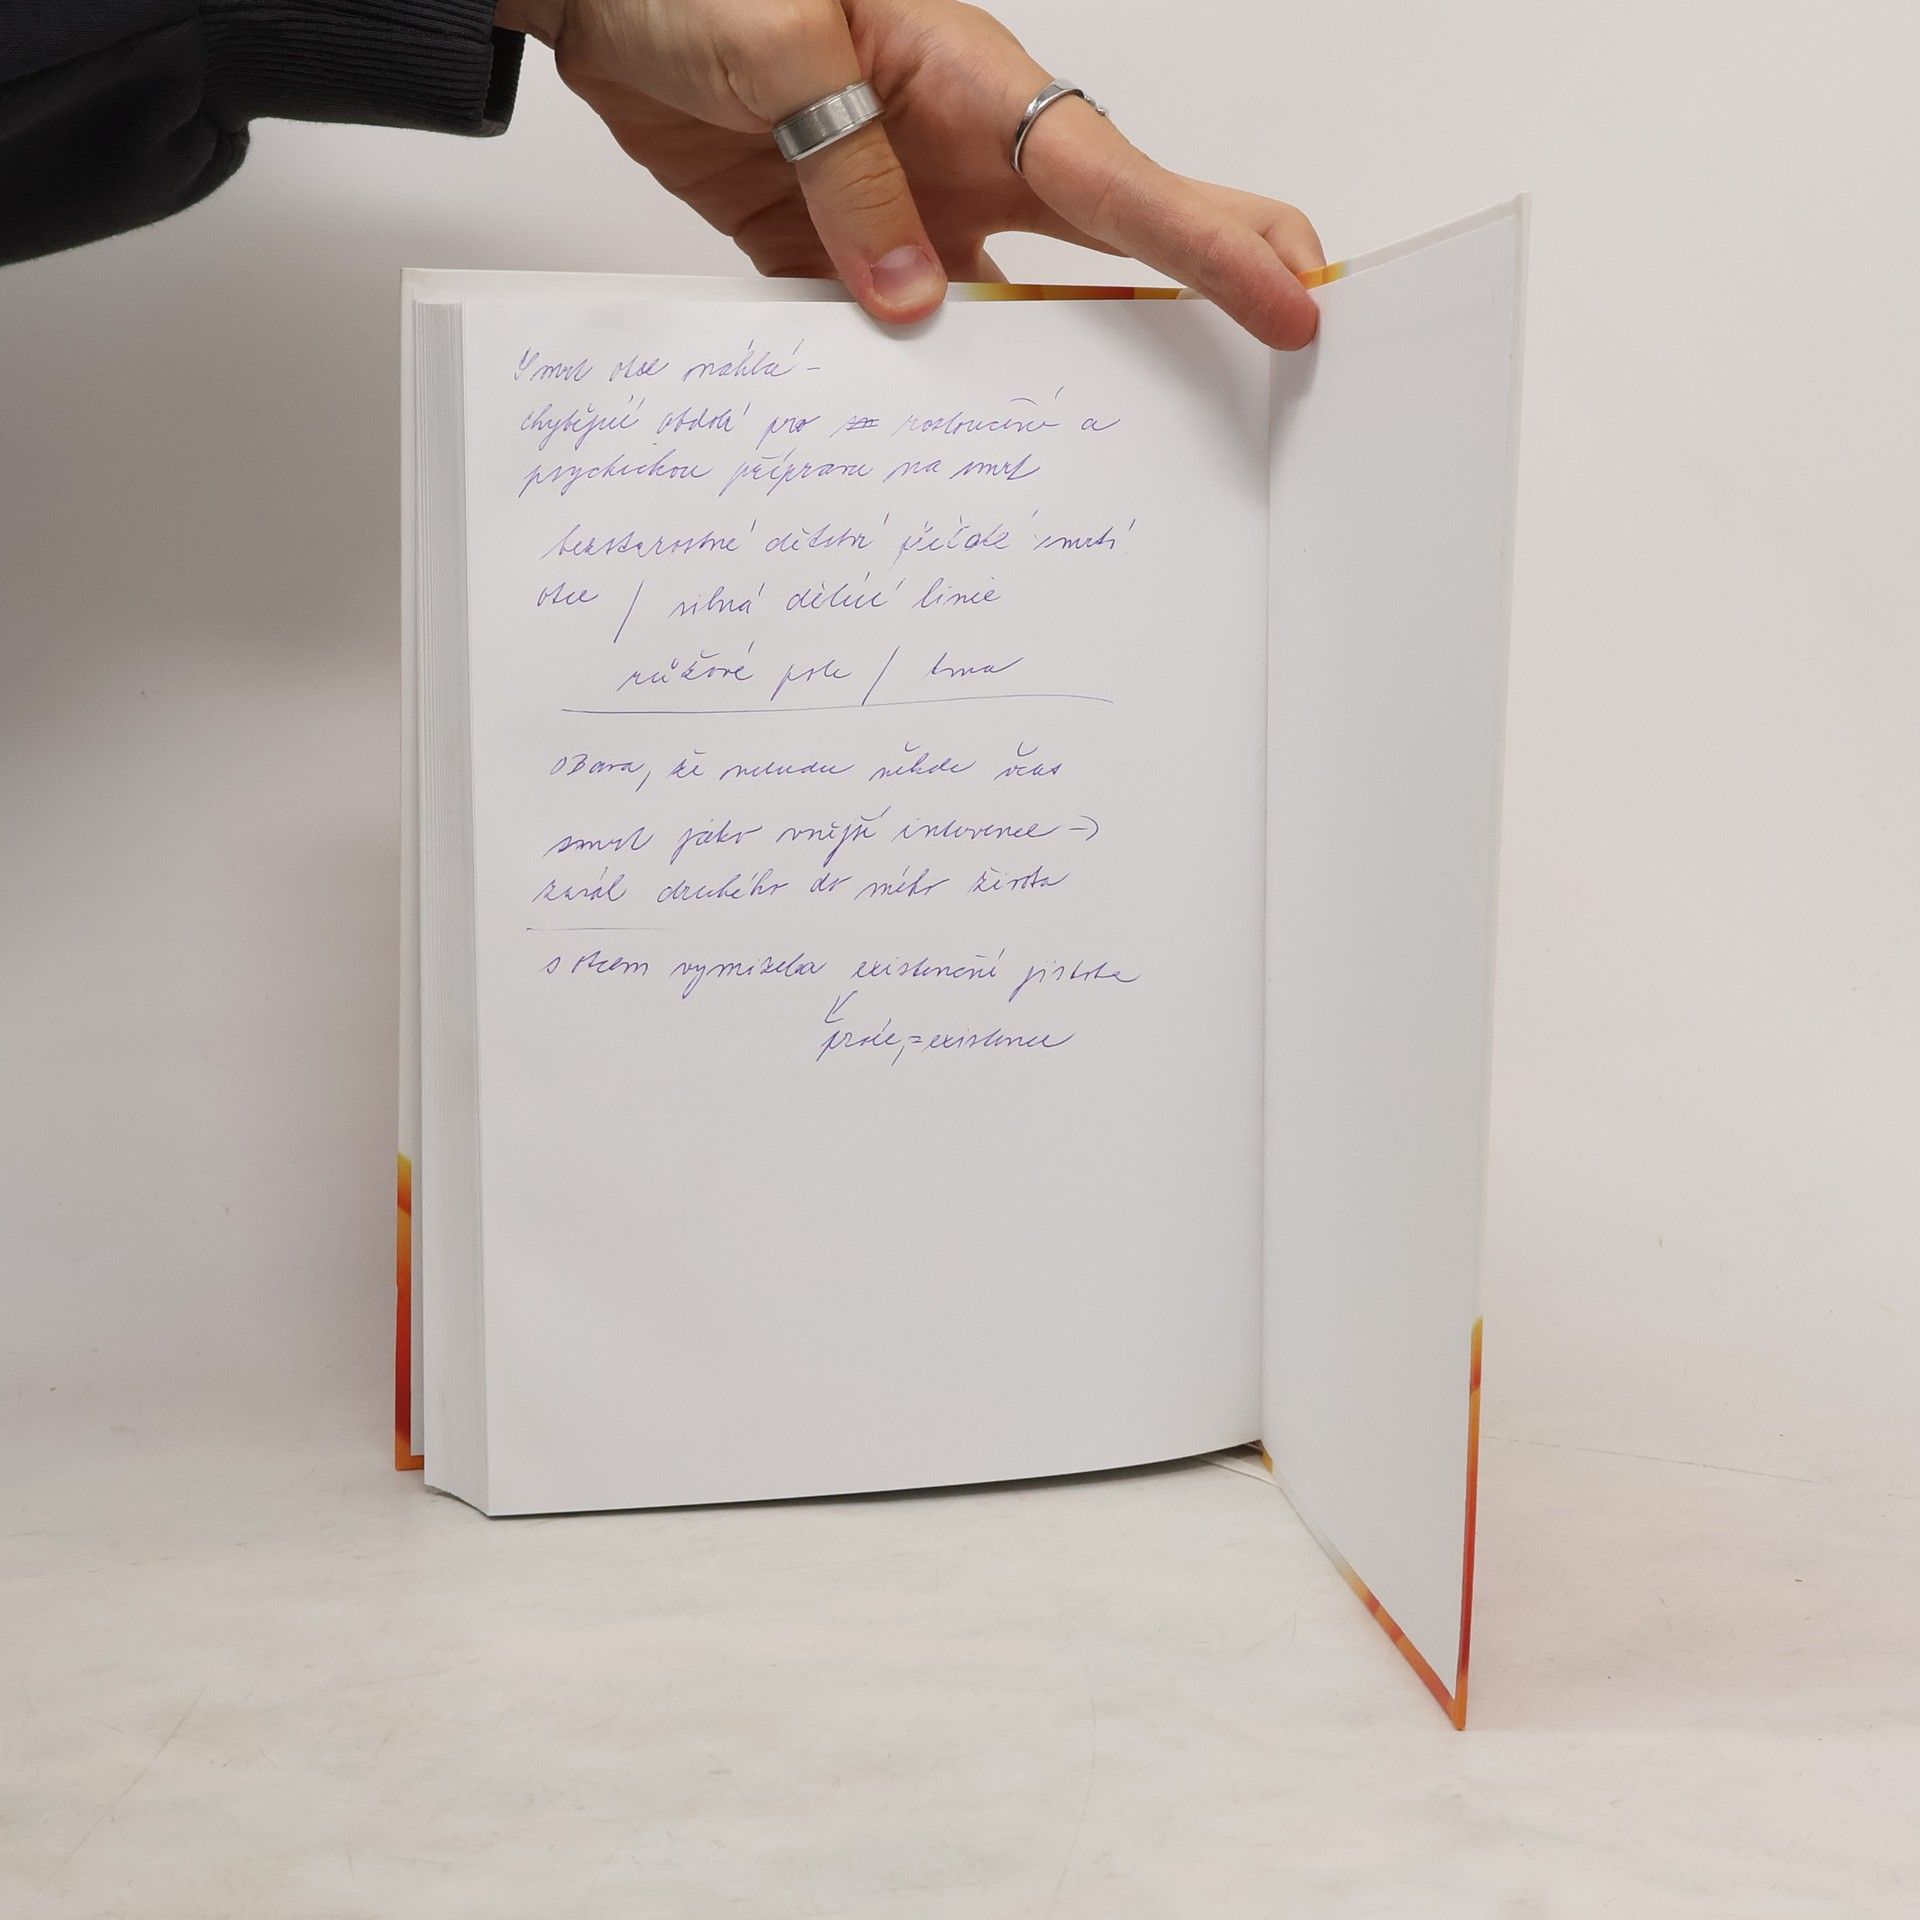 Smrt otce náhlá –
chybějící období pro rozloučení a
psychickou přípravu na smrt
bezstarostné dětství přeťaté smrtí
otce / silná dělící linie
růžové pole / tma
obava, že nebudu někde včas
smrt jako vnější intervence →
zásah druhého do mého života
s otcem vymizela existenční jistota
práce = existence